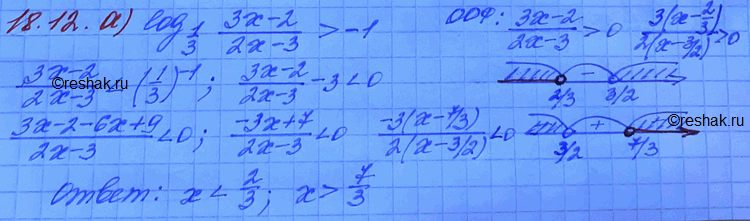 18.12. а) log 1/3 (3x-2)/(2x-3) > -1 ООФ: (3x-2)/(2x-3) > 0 3(x-2/3)/2(x-3/2) > 0
(3x-2)/(2x-3) - (1/3)^-1; (3x-2)/(2x-3) - 3 < 0 - 2/3 3/2
(3x-2-6x+9)/(2x-3) < 0; (-3x+7)/(2x-3) < 0 -3(x-7/3)/2(x-3/2) < 0 + 3/2 7/3
Ответ: x < 2/3; x > 7/3
©reshak.ru ©reshak.ru
©reshak.ru ©reshak.ru